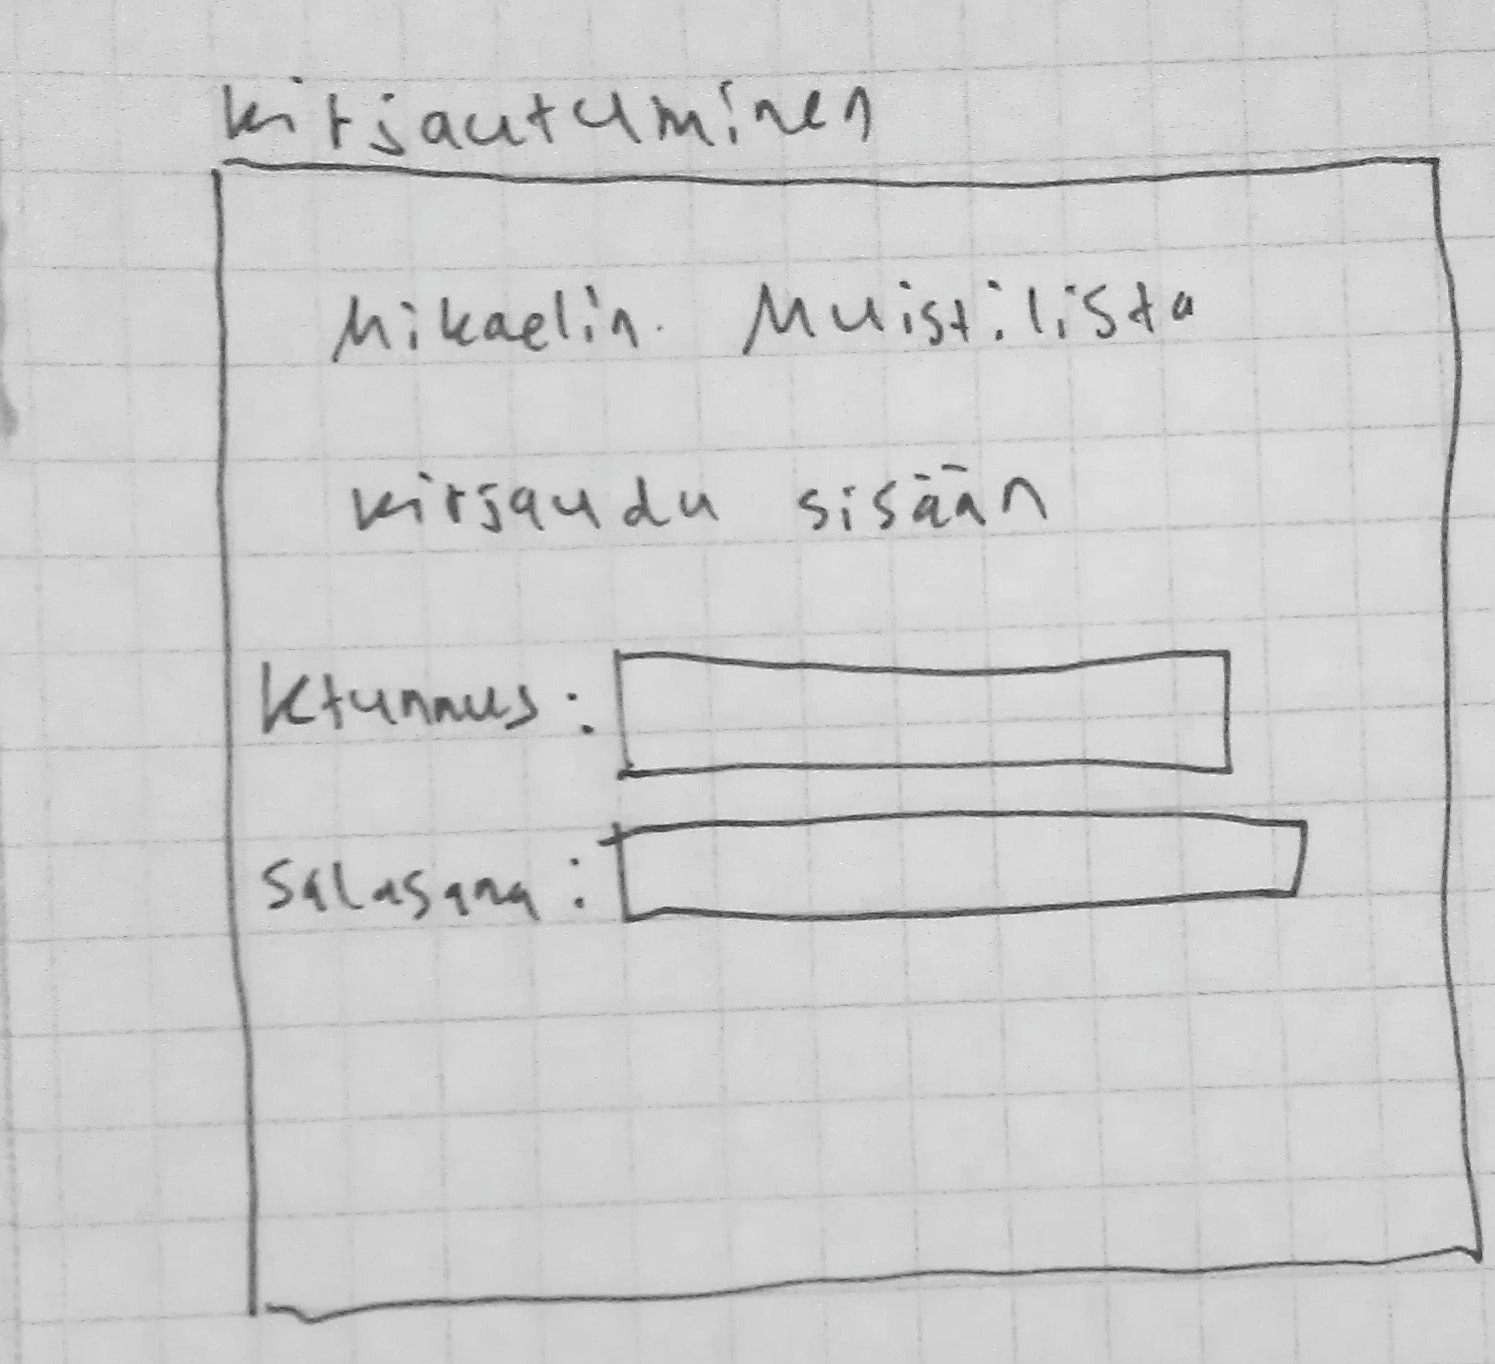 Kirjautuminen
Mikaelin Muistilista
Kirjaudu sisään
Ktunnus:
Salasana: